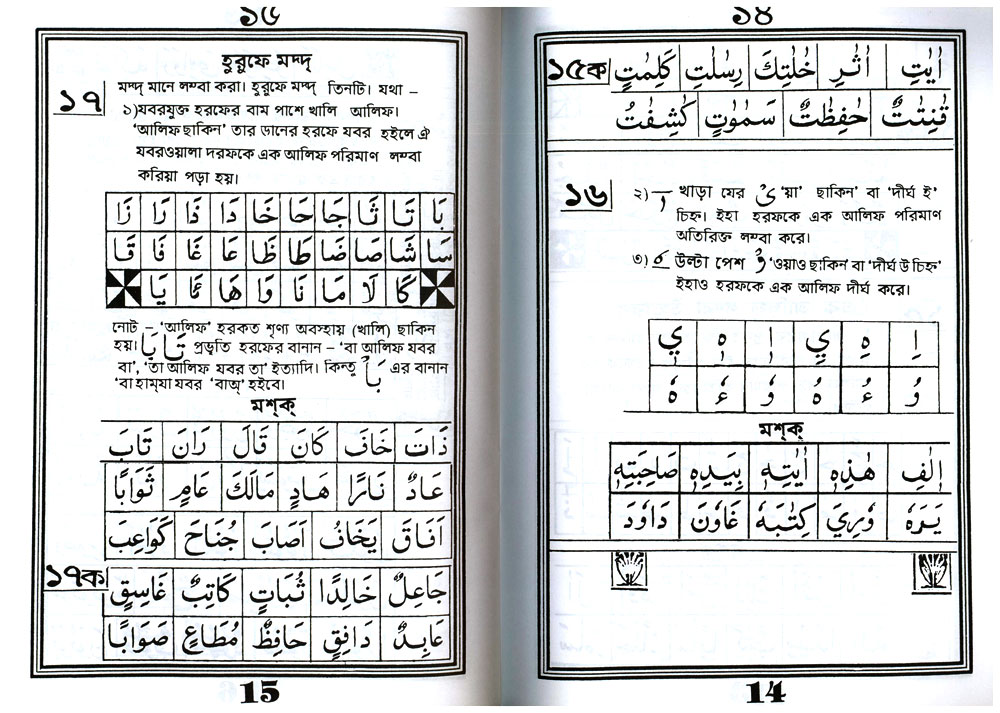 ১৪
১৫ক
اٰيٰتِ اٰثٰرِ خٰلٰتِكَ رِسٰلٰتِ كَلِمٰتٍ
قٰنِتٰتٌ حٰفِظٰتٌ سَمٰوٰتٍ كٰشِفٰتُ
১৬
২) খাড়া যের ىْ 'য়া' ছাকিন' বা 'দীর্ঘ ই'
চিহ্ন। ইহা হরফকে এক আলিফ পরিমাণ
অতিরিক্ত লম্বা করে।
৩) উল্টা পেশ وْ 'ওয়াও ছাকিন বা 'দীর্ঘ উ চিহ্ন'
ইহাও হরফকে এক আলিফ দীর্ঘ করে।
اِ هِ يِ اٖ هٖ يٖ
وُ ءُ هُ وٗ ءٗ هٗ
মশ্‌ক্
اٖلٰفِ هٰذِهٖ اٰيٰتِهٖ بِيَدِهٖ صَاحِبَتِهٖ
يَرَهٗ وٗرِيَ كِتٰبَهٗ غَاوٗنَ دَاوٗدَ
14
১৫
হুরুফে মদ্দ্
১৭
মদ্দ্ মানে লম্বা করা। হুরুফে মদ্দ্ তিনটি। যথা –
১)যবরযুক্ত হরফের বাম পাশে খালি আলিফ।
'আলিফ ছাকিন' তার ডানের হরফে যবর হইলে ঐ
যবরওয়ালা দরফকে এক আলিফ পরিমাণ লম্বা
করিয়া পড়া হয়।
بَا تَا ثَا جَا حَا خَا دَا ذَا رَا زَا
سَا شَا صَا ضَا طَا ظَا عَا غَا فَا قَا
كَا لَا مَا نَا وَا هَا ءَا يَا
নোট – 'আলিফ' হরকত শূণ্য অবস্হায় (খালি) ছাকিন
হয়। بَا تَا প্রভৃতি হরফের বানান – 'বা আলিফ যবর
বা', 'তা আলিফ যবর তা' ইত্যাদি। কিন্তু بَأْ এর বানান
'বা হাম্‌যা যবর 'বাঅ্' হইবে।
মশ্‌ক্
ذَاتَ خَافَ كَانَ قَالَ رَانَ تَابَ
عَادٌ نَارًا هَادٍ مَالَكَ عَامٍ ثَوَابًا
اٰفَاقَ يَخَافُ اَصَابَ جُنَاحَ كَوَاعِبَ
১৭ক
جَاعِلٌ خَالِدًا ثُبَاتٍ كَاتِبٌ غَاسِقٍ
عَابِدٌ دَافِقٍ حَافِظٌ مُطَاعٍ صَوَابًا
15